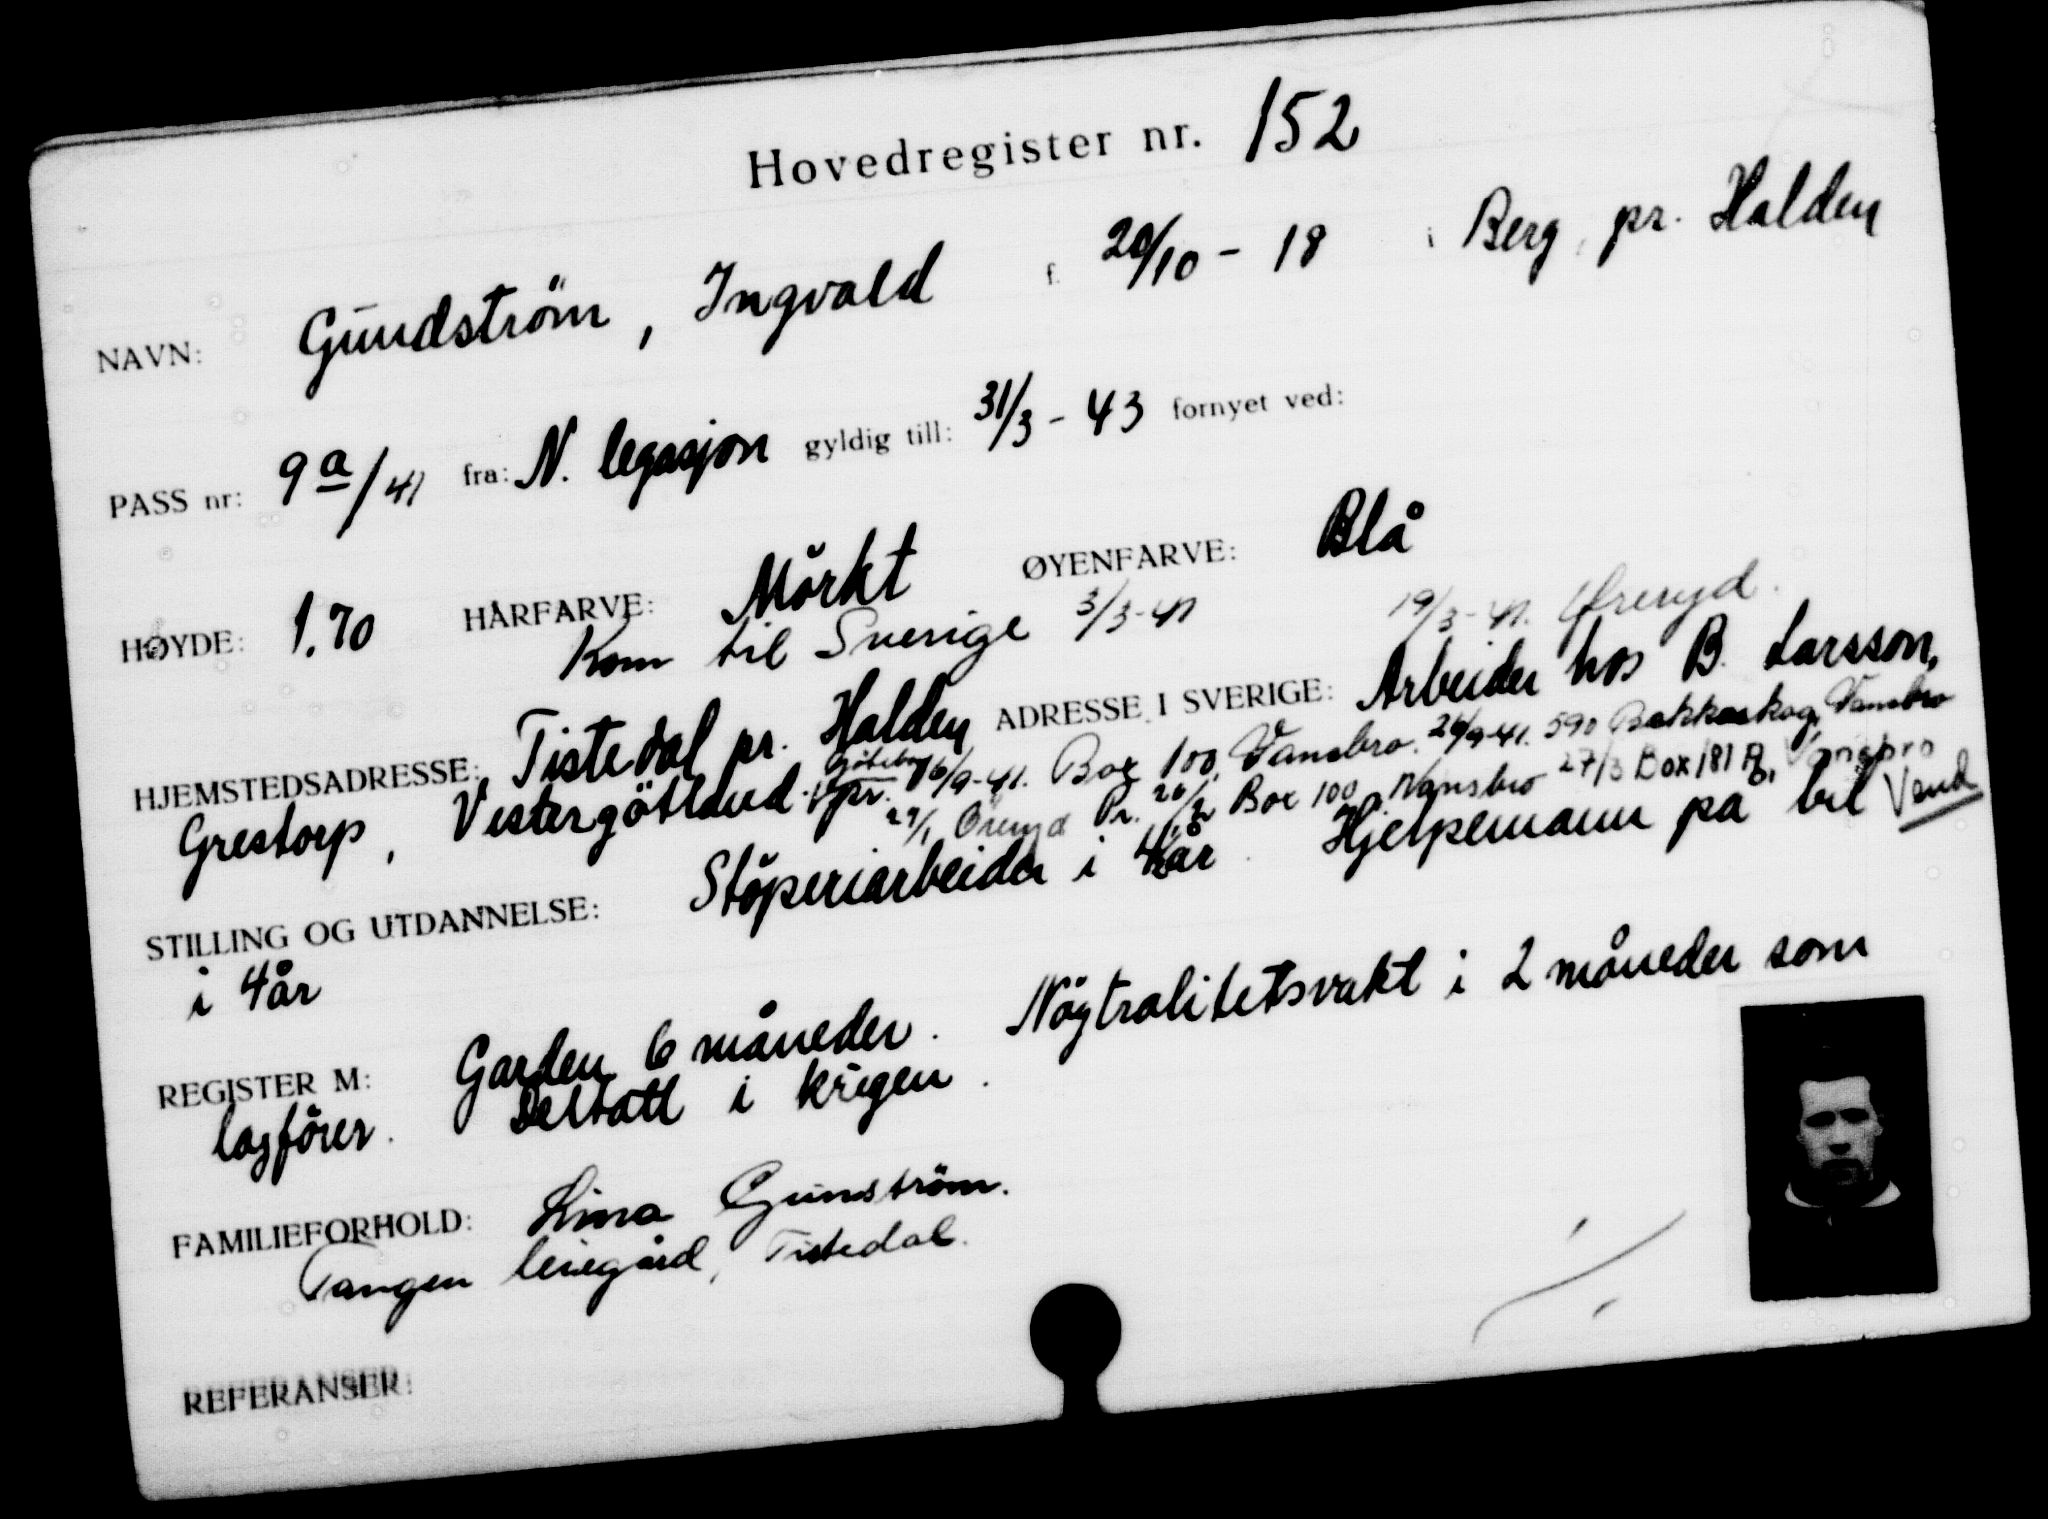 Hovedregister nr. 152
NAVN: Gundström, Ingvald f. 20/10 - 18 i Berg, pr. Halden
PASS nr: 9a/41 fra: N. legasjon gyldig till: 31/3 - 43 fornyet ved:
HØYDE: 1.70 HÅRFARVE: Mörkt ØYENFARVE: Blå
Kom til Sverige 3/3-41 19/3-41. Øreryd.
HJEMSTEDSADRESSE: Tistedal pr. Halden ADRESSE I SVERIGE: Arbeider hos B. Larsson,
Grestorp, Vestergötland. Göteborg 16/9-41. Box 100, Vansbro. 26/9-41. 590 Bakkaskog, Vansbro
pr. 29/1 Öreryd Pr. 20/2 Box 100, Vansbro 27/3 Box 181 A, Vansbro
STILLING OG UTDANNELSE: Støperiarbeider i 4 år. Hjelpemann på bil Vend
i 4 år
REGISTER M: Garden 6 måneder. Nøytralitetsvakt i 2 måneder som
lagfører. Deltatt i krigen.
FAMILIEFORHOLD: Lina Gunström.
Tangen leiegård, Tistedal.
REFERANSER: